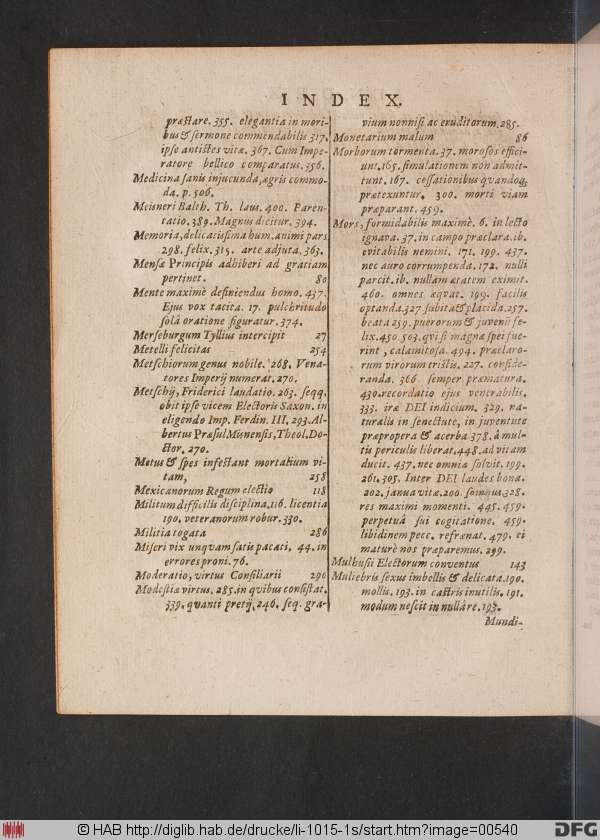 INDEX.
præstare. 355. elegantia in mori-
bus & sermone commendabilis 317.
ipse antistes vitæ. 367. Cum Impe-
ratore bellico comparatus. 356.
Medicina sanis injucunda, ægris commo-
da. p. 506.
Meisneri Balth. Th. laus. 400. Paren-
tatio. 389. Magnus dicitur. 394.
Memoria, delicatissima hum. animi pars
298. felix. 315. arte adjuta. 363.
Mensæ Principis adhiberi ad gratiam
pertinet. 80
Mente maximè definiendus homo. 437.
Ejus vox tacita. 17. pulchritudo
solâ oratione figuratur. 374.
Merseburgum Tyllius intercipit 27
Metelli felicitas 254
Metschiorum genus nobile. 268. Vena-
tores Imperij numerat. 270.
Metschij, Friderici laudatio. 263. seqq.
obit ipse vicem Electoris Saxon. in
eligendo Imp. Ferdin. III. 293. Al-
bertus Præsul Misnensis, Theol. Do-
ctor. 270.
Metus & spes infestant mortalium vi-
tam, 258
Mexicanorum Regum electio 118
Militum difficilis disciplina. 116. licentia
190. veteranorum robur. 330.
Militia togata 286
Miseri vix unqvam satis pacati. 44. in
errores proni. 76.
Moderatio, virtus Consiliarii 290
Modestiæ virtus. 285. in qvibus consistat.
339. qvanti pretij. 246. seq. gra-
vium nonnisi ac eruditorum. 285.
Monetarium malum 86
Morborum tormenta. 37. morosos effici-
unt. 165. simulationem non admit-
tunt. 167. cessationibus qvandoq;
prætexuntur. 300. morti viam
præparant. 459.
Mors, formidabilis maximè. 6. in lecto
ignava. 37. in campo præclara. ib.
evitabilis nemini. 171. 199. 437.
nec auro corrumpenda. 172. nulli
parcit. ib. nullam ætatem eximit.
460. omnes æqvat. 199. facilis
optanda. 327 subita & placida. 257.
beata 259. puerorum & juvenū fe-
lix. 450. 503. qvi si magnæ spei fue-
rint, calamitosa. 494. præclaro-
rum virorum tristis. 227. conside-
randa. 366. semper præmatura.
430. recordatio ejus venerabilis.
333. iræ DEI indicium. 329. na-
turalis in senectute, in juventute
præpropera & acerba 378. à mul-
tis periculis liberat. 448. ad vitam
ducit. 437. nec omnia solvit. 199.
261. 305. Inter DEI laudes bona.
202. janua vitæ. 200. somnus 328.
res maximi momenti. 445. 459.
perpetuâ sui cogitatione. 459.
libidinem pecc. refrænat. 479. ei
maturè nos præparemus. 299.
Mulhusii Electorum conventus 143
Muliebris sexus imbellis & delicata. 190.
mollis. 193. in castris inutilis. 191.
modum nescit in nullâ re. 193.
Mundi-
© HAB http://diglib.hab.de/drucke/li-1015-1s/start.htm?image=00540
DFG